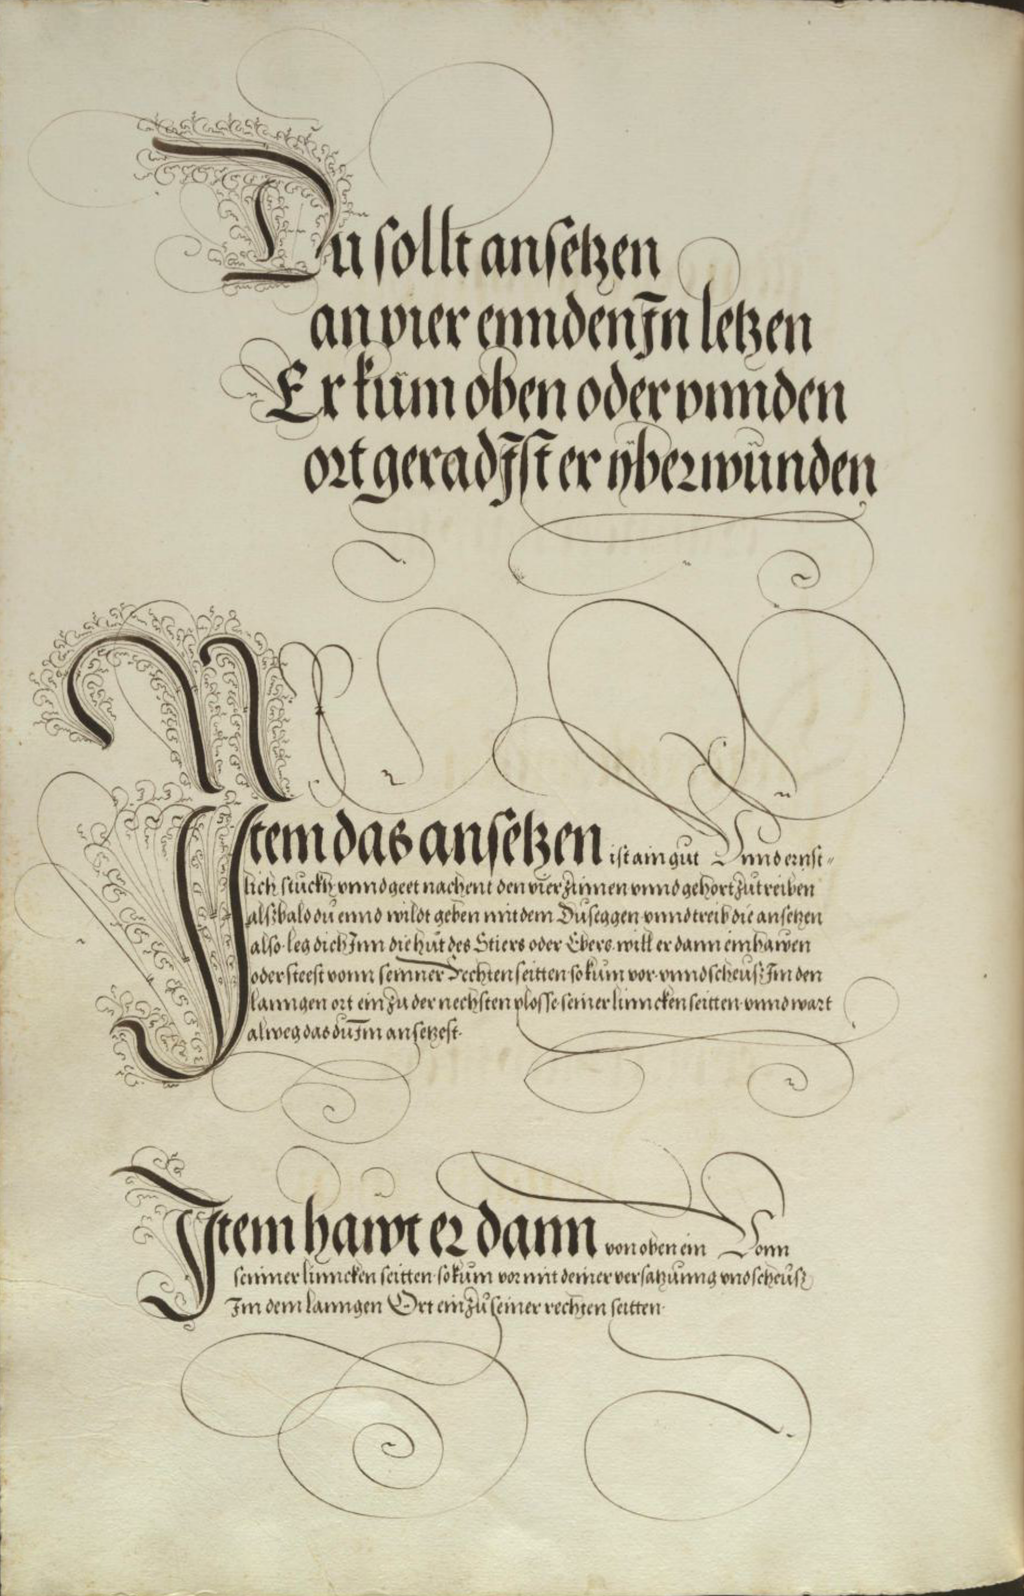 Du sollt ansetzen
an vier ennden Jn letzen
Er kum oben oder vnnden
ort gerad Jst er ÿberwünden
Jtem das ansetzen ist ain gut Vnnd ernst=
lich stuckh vnnd geet nachent den vier zinnen vnnd gehort zu treiben
alsbald du ennd wildt geben mit dem Duseggen vnnd treib die ansetzen
also. leg dich Jnn die hut des Stiers oder Ebers. will er dann einhawen
oder steest vonn seinner Rechten seitten so kum vor vnnd scheus Jm den
lanngen ort ein zu der nechsten plosse seiner linncken seitten vnnd wart
alweg das du Jm ansetzest.
Jtem hawt er dann von oben ein Vonn
seinner linncken seitten. so kum vor mit deiner versatzunng vnd scheus
Jm dem lanngen Ort ein zu seiner rechten seitten.